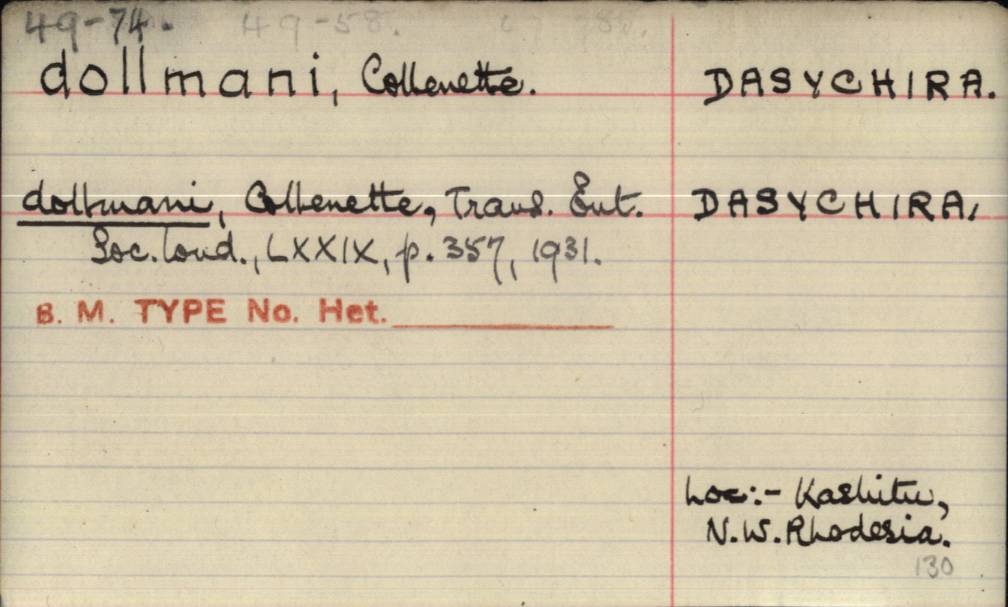 49-74. 49-58.
dollmani, Collenette. DASYCHIRA.
dollmani, Collenette, Trans. Ent. DASYCHIRA,
Soc. Lond., LXXIX, p. 357, 1931.
B. M. TYPE No. Het.
Loc:- Kashitu,
N.W. Rhodesia.
130